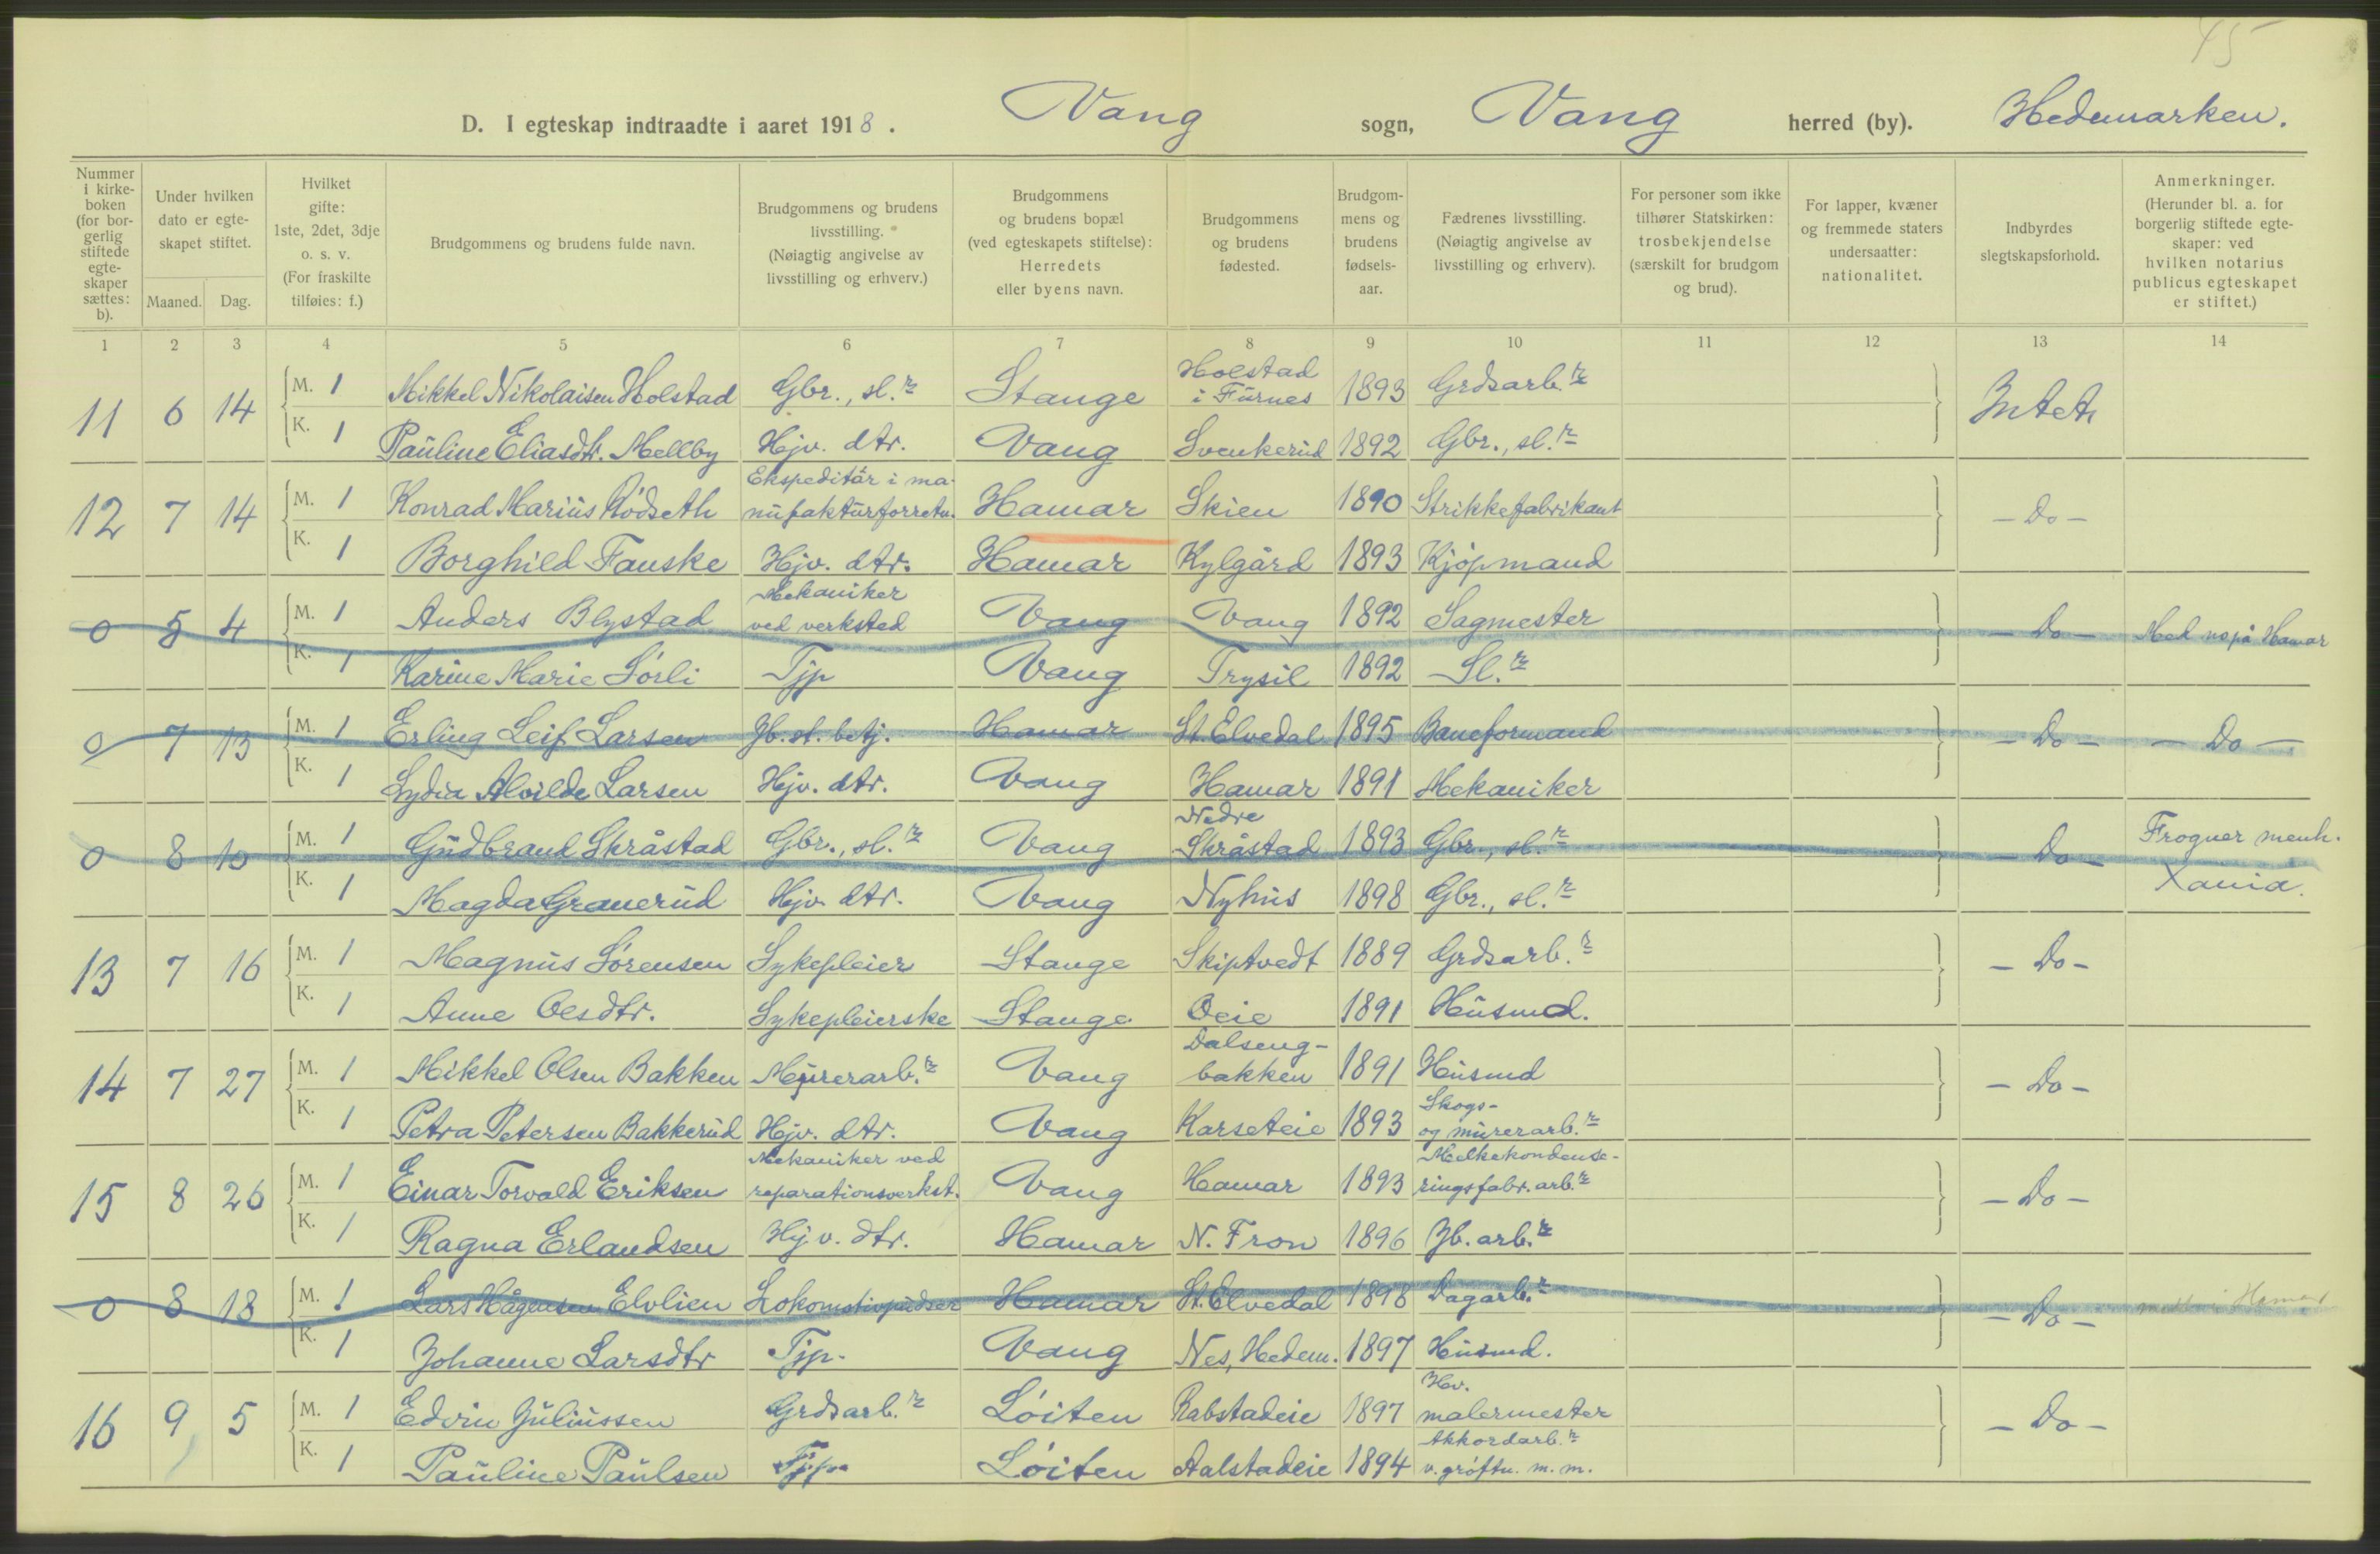 45
D. I egteskap indtraadte i aaret 1918. Vang sogn, Vang herred (by). Hedemarken.
Nummer i kirkeboken (for borgerlig stiftede egteskaper sættes: b).
Under hvilken dato er egteskapet stiftet.
Maaned. Dag.
Hvilket gifte: 1ste, 2det, 3dje o. s. v. (For fraskilte tilføies: f.)
Brudgommens og brudens fulde navn.
Brudgommens og brudens livsstilling. (Nøiagtig angivelse av livsstilling og erhverv.)
Brudgommens og brudens bopæl (ved egteskapets stiftelse): Herredets eller byens navn.
Brudgommens og brudens fødested.
Brudgommens og brudens fødsels-aar.
Fædrenes livsstilling. (Nøiagtig angivelse av livsstilling og erhverv).
For personer som ikke tilhører Statskirken: trosbekjendelse (særskilt for brudgom og brud).
For lapper, kvæner og fremmede staters undersaatter: nationalitet.
Indbyrdes slegtskapsforhold.
Anmerkninger. (Herunder bl. a. for borgerlig stiftede egteskaper: ved hvilken notarius publicus egteskapet er stiftet.)
1 2 3 4 5 6 7 8 9 10 11 12 13 14
11 6 14 M. 1 Mikkel Nikolaisen Holstad Gbr., sl. Stange Holstad i Furnes 1893 Grdsarb. Intet
K. 1 Pauline Eliasdtr. Mellby Hjv. dtr. Vang Svenkerud 1892 Gbr., sl.
12 7 14 M. 1 Konrad Marius Rødseth Ekspeditør i manufakturforretn. Hamar Skien 1890 Strikkefabrikant - Do -
K. 1 Borghild Fauske Hjv. dtr. Hamar Kylgård 1893 Kjøpmand
0 5 4 M. 1 Anders Blystad Mekaniker ved verksted Vang Vang 1892 Sagmester - Do - Hamar
K. 1 Karine Marie Sörli Tjp Vang Trysil 1892 Sl.
0 7 13 M. 1 Erling Leif Larsen Jb. st. betj. Hamar St. Elvedal 1895 Baneformand - Do - - Do -
K. 1 Lydia Alvilde Larsen Hjv. dtr. Vang Hamar 1891 Mekaniker
0 8 10 M. 1 Gudbrand Skråstad Gbr., sl. Vang Nedre Skråstad 1893 Gbr., sl. - Do - Frogner menh. Xania.
K. 1 Magda Granerud Hjv. dtr. Vang Nyhus 1898 Gbr., sl.
13 7 16 M. 1 Magnus Sörensen Sykepleier Stange Skiptvedt 1889 Grdsarb. - Do -
K. 1 Anne Olsdtr. Sykepleierske Stange Oeie 1891 Husmd.
14 7 27 M. 1 Mikkel Olsen Bakken Murerarb. Vang Dalsengbakken 1891 Husmd - Do -
K. 1 Petra Petersen Bakkerud Hjv. dtr. Vang Karseteie 1893 Skogs- og murerarb.
15 8 26 M. 1 Einar Torvald Eriksen Mekaniker ved reparationsverkst. Vang Hamar 1893 Melkekondenseringsfabr. arb. - Do -
K. 1 Ragna Erlandsen Hjv. dtr. Hamar N. Fron 1896 Jb. arb.
0 8 18 M. 1 Lars Hågensen Elvlien Lokomotivpudser Hamar St. Elvedal 1898 Dagarb. - Do - Hamar
K. 1 Johanne Larsdtr Tjp. Vang Nes, Hedem. 1897 Husmd.
16 9 5 M. 1 Edvin Juliussen Grdsarb. Löiten Rabstadeie 1897 Hv. malermester - Do -
K. 1 Pauline Paulsen Tjp. Löiten Aalstadeie 1894 Akkordarb. v. gröftn. m. m.